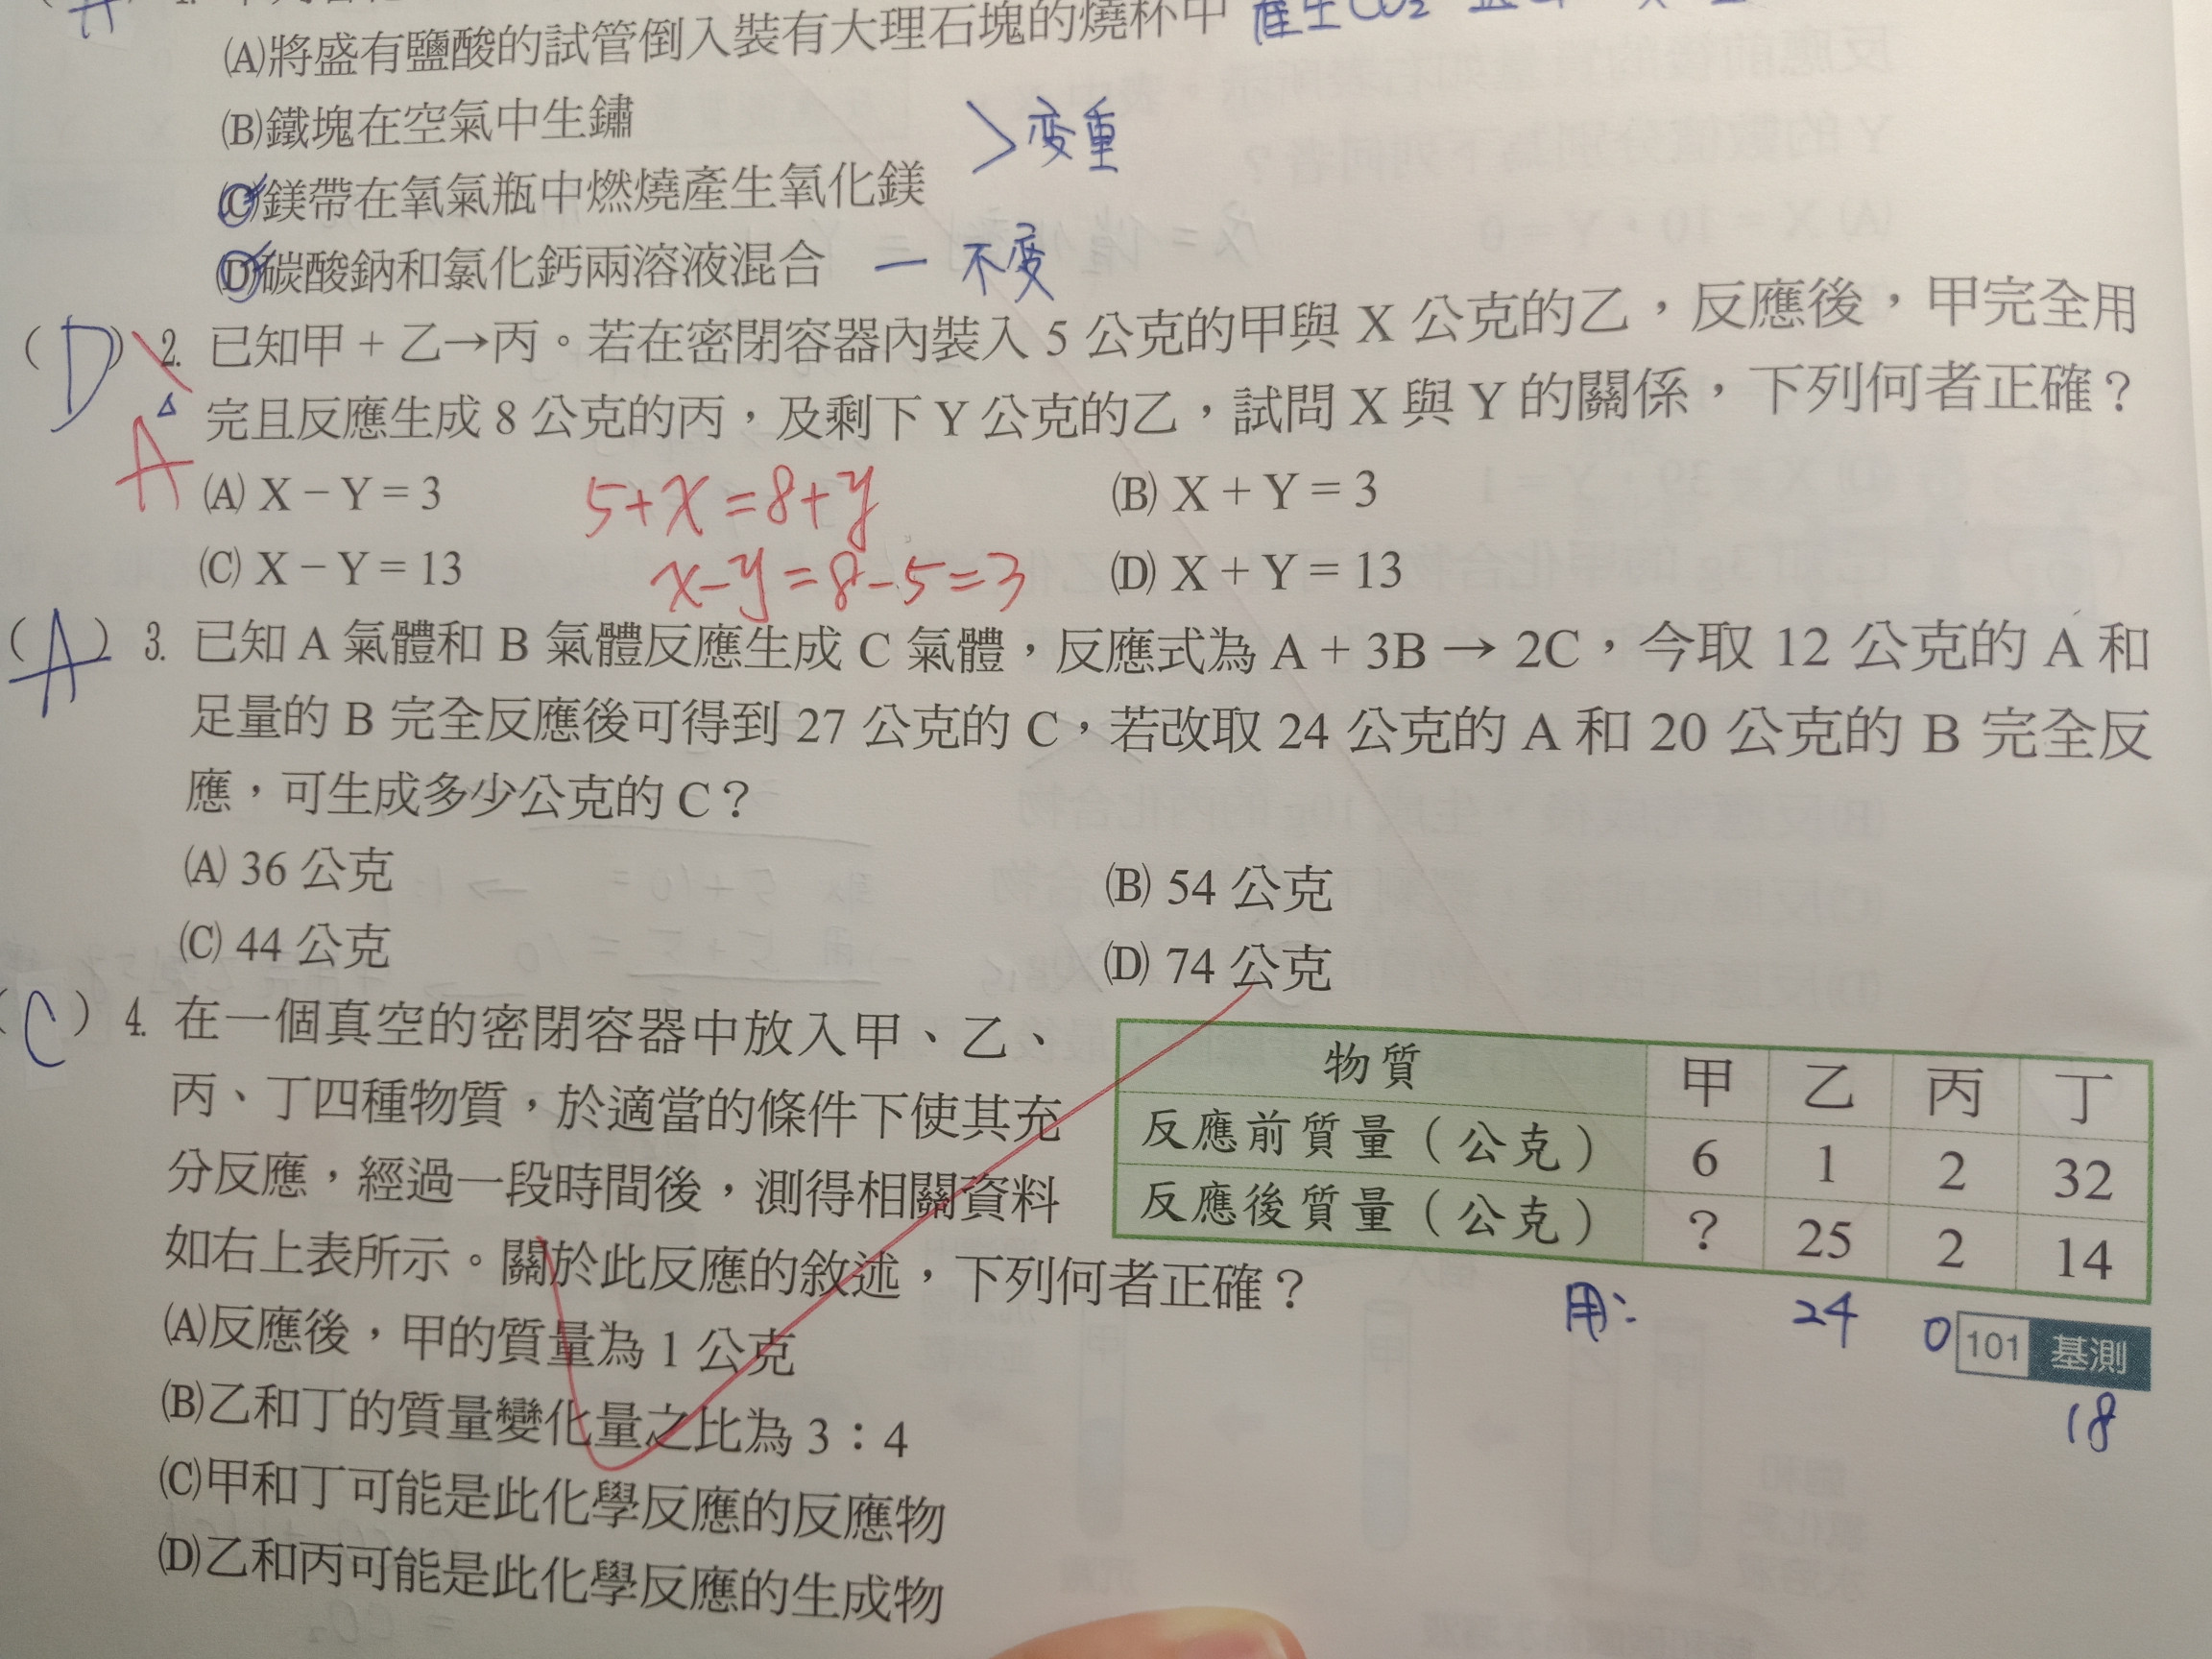 產生CO₂
(A)將盛有鹽酸的試管倒入裝有大理石塊的燒杯中
(B)鐵塊在空氣中生鏽
>變重
(C)鎂帶在氧氣瓶中燃燒產生氧化鎂
(D)碳酸鈉和氯化鈣兩溶液混合 — 不變
(D) 2. 已知甲 + 乙→丙。若在密閉容器內裝入 5 公克的甲與 X 公克的乙,反應後,甲完全用
完且反應生成 8 公克的丙,及剩下 Y 公克的乙,試問 X 與 Y 的關係,下列何者正確?
A
(A) X − Y = 3 (B) X + Y = 3
5+x=8+y
(C) X − Y = 13 (D) X + Y = 13
x-y=8-5=3
(A) 3. 已知 A 氣體和 B 氣體反應生成 C 氣體,反應式為 A + 3B → 2C,今取 12 公克的 A 和
足量的 B 完全反應後可得到 27 公克的 C,若改取 24 公克的 A 和 20 公克的 B 完全反
應,可生成多少公克的 C?
(A) 36 公克 (B) 54 公克
(C) 44 公克 (D) 74 公克
(C) 4. 在一個真空的密閉容器中放入甲、乙、
丙、丁四種物質,於適當的條件下使其充
分反應,經過一段時間後,測得相關資料
如右上表所示。關於此反應的敘述,下列何者正確?
物質 甲 乙 丙 丁
反應前質量(公克) 6 1 2 32
反應後質量(公克) ? 25 2 14
用: 24 0 18
101 基測
(A)反應後,甲的質量為 1 公克
(B)乙和丁的質量變化量之比為 3:4
(C)甲和丁可能是此化學反應的反應物
(D)乙和丙可能是此化學反應的生成物